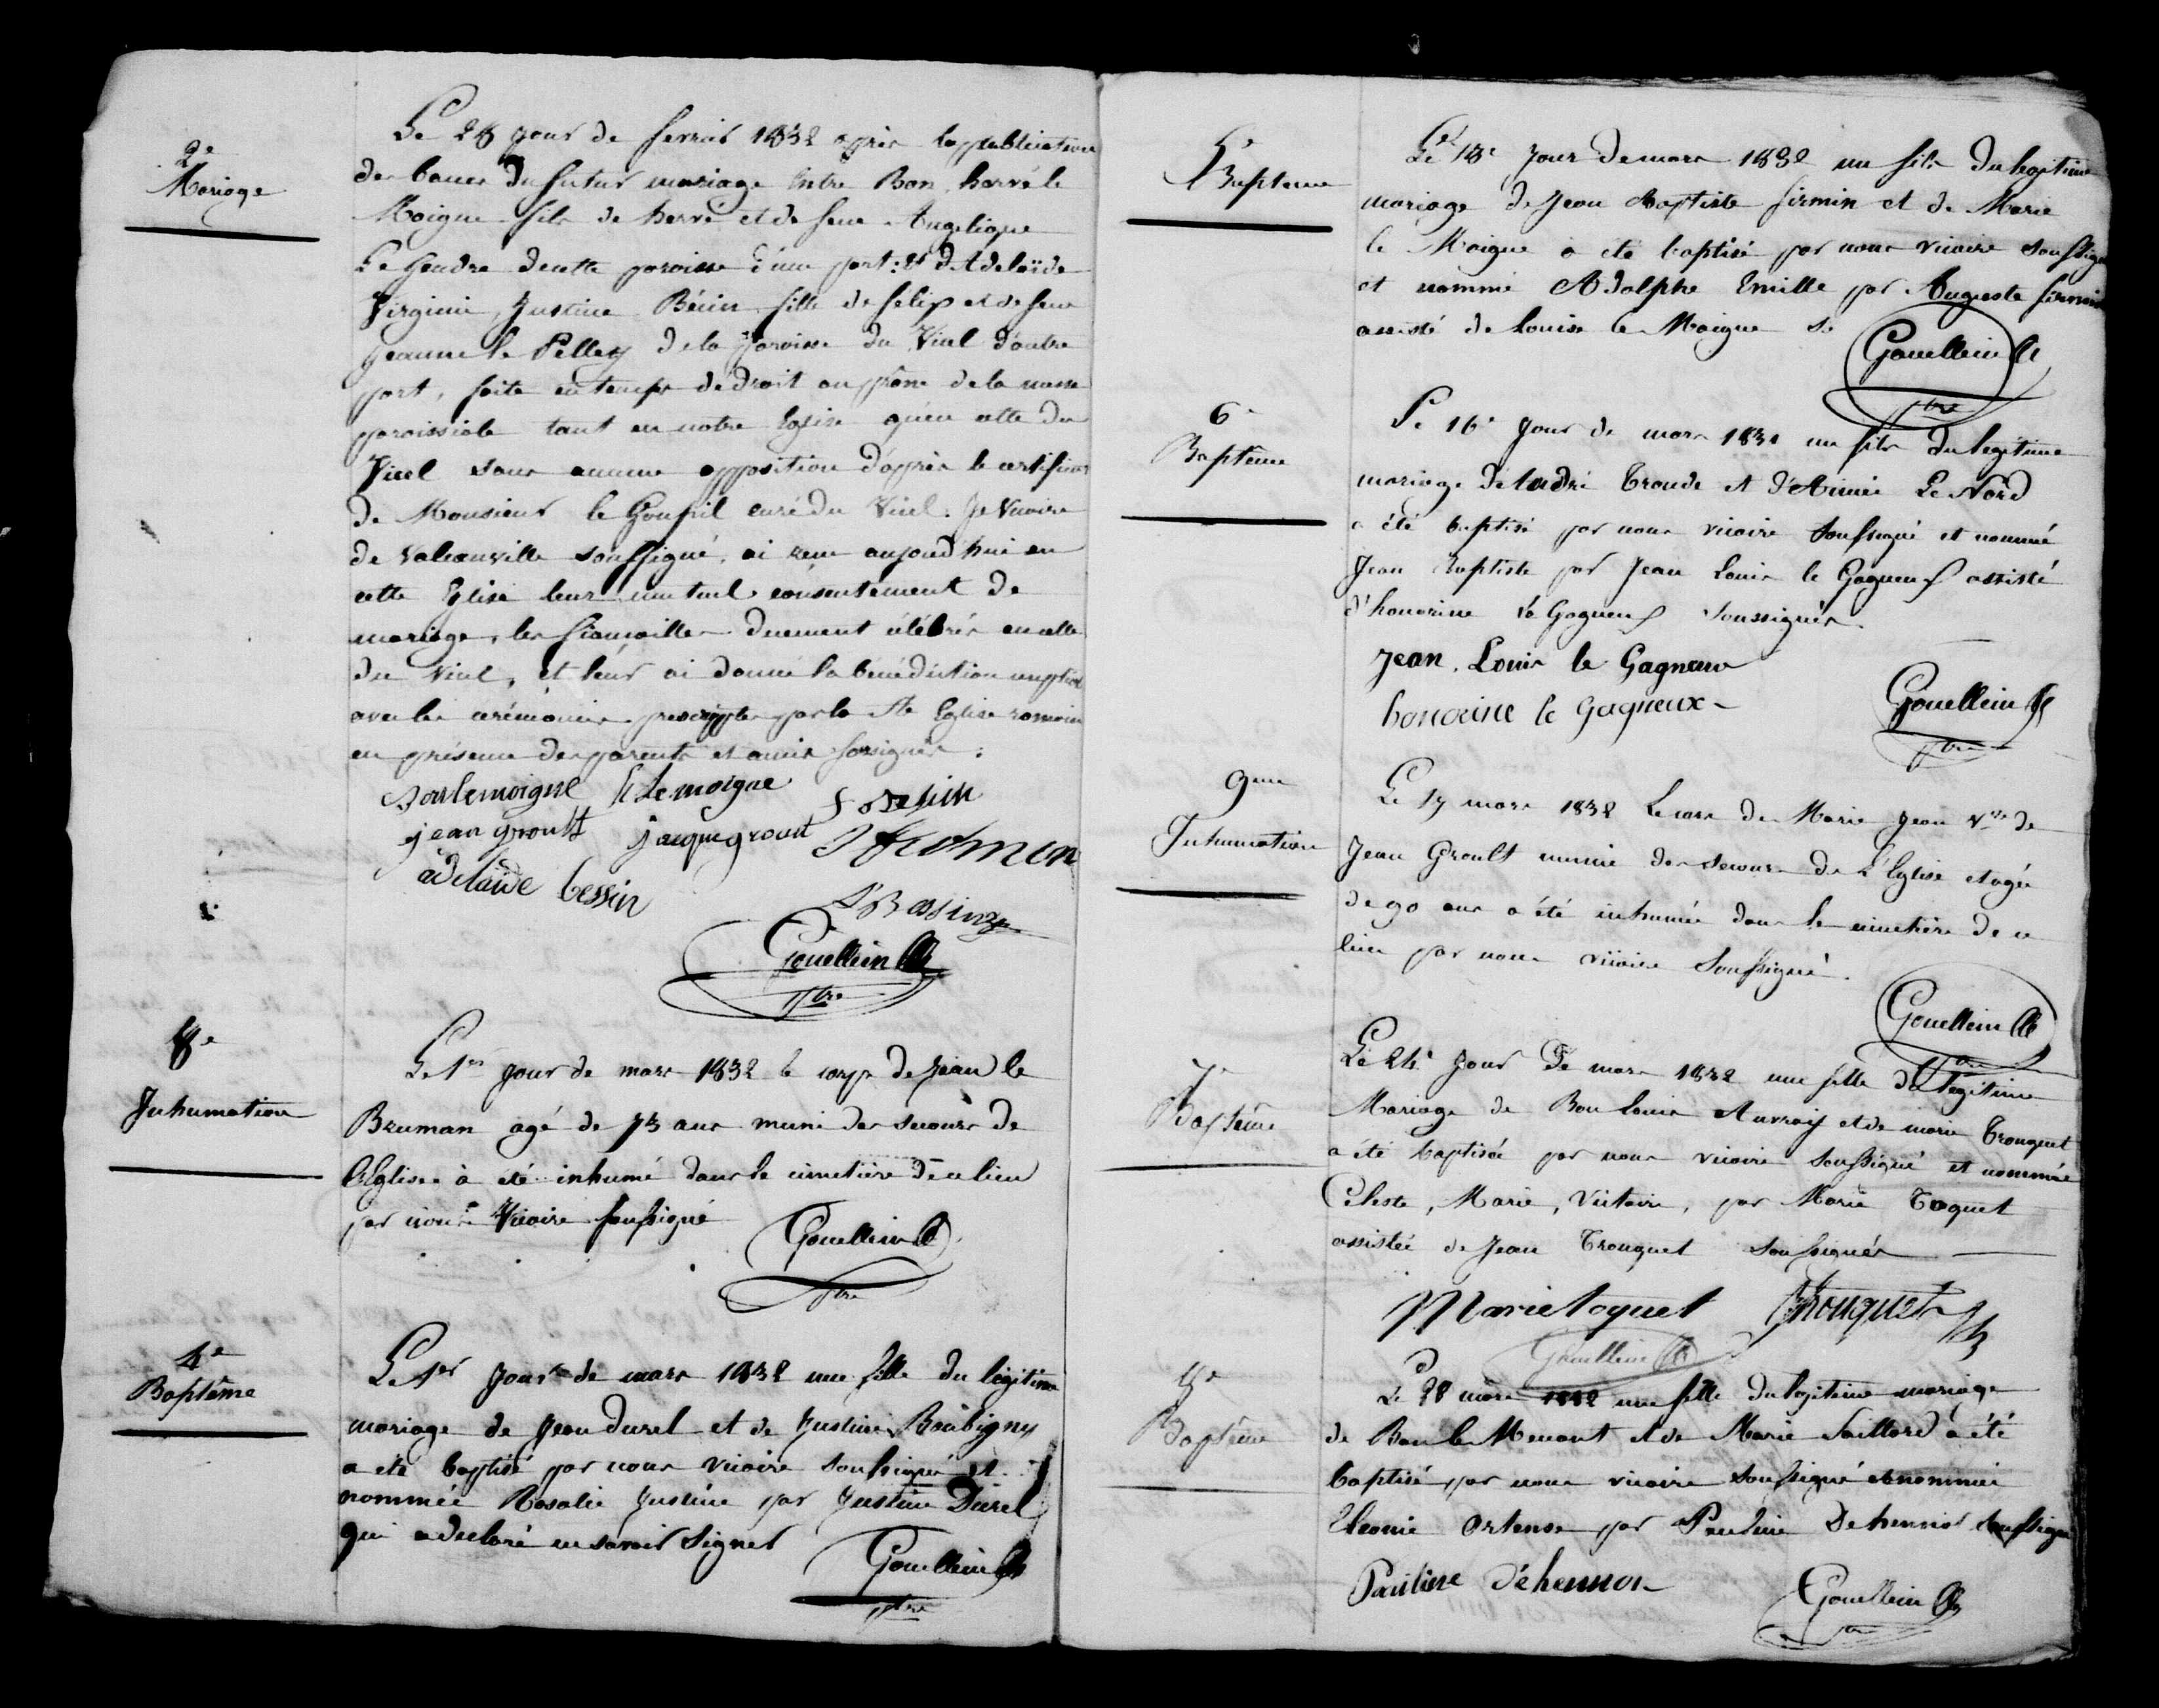 2e
Mariage
Le 28 jour de fevrier 1832 après la publication
des bancs du futur mariage entre Bon hervé le
Moigne fils de hervé et de feue Angelique
Le Gendre de cette paroisse d'une part: et d'Adelaïde
Virginie, Justine Bécin fille de felix et de feue
jeanne le Pelley de la paroisse du Vicel d'autre
part, faite en temps de droit au prône de la messe
paroissiale tant en notre Eglise qu'en celle du
Vicel sans aucune opposition d'après le certificat
de Monsieur le Goupil curé du Vicel. Je Vicaire
de Valcanville soussigné, ai reçu aujourd'hui en
cette Eglise leur mutuel consentement de
mariage, les fiançailles duement célébrés en celle
du Vicel, et leur ai donné la bénédiction nuptial
avec les cérémonies prescriptes par la Ste Eglise romaine
en présence des parents et amis sousignés:
Bon lemoigne h Lemoigne
jean groult jacque groult
adelaïde bessin
Gouellain
ptre
8e
Inhumation
Le 1er jour de mars 1832 le corps de jean le
Bruman agé de 73 ans muni des secours de
l'Eglise à été inhumé dans le cimetière de ce lieu
par nous Vicaire soussigné
Gouellain
ptre
4e
Baptême
Le 1er jour de mars 1832 une fille du légitime
mariage de Jean durel et de Justine Boubigny
a été baptisé par nous vicaire soussigné et
nommée Rosalie Justine par Justine Durel
qui a declaré ne savoir signer
Gouellain
ptre
5e
Bapteme
Le 13e jour de mars 1832 un fils du legitime
mariage de Jean Baptiste firmin et de Marie
le Moigne a été baptisé par nous vicaire soussigné
et nommé Adolphe Emille par Auguste firmin
assisté de Louise le Moigne
Gouellain
ptre
6e
Baptême
Le 16e jour de mars 1832 un fils du legitime
mariage de André Troude et d'Aimée Le Nord
a été baptisé par nous vicaire soussigné et nommé
Jean Baptiste par Jean Louis le Gagneux assisté
d'honorine le Gagneux soussignés.
jean Louis le Gagneux
honorine le Gagneux
Gouellain
ptre
9eme
Inhumation
Le 17 mars 1832 le corps de Marie Jean Vve de
Jean Groult munie des secours de L'Eglise et agée
de 90 ans a été inhumée dans le cimetière de ce
lieu par nous vicaire soussigné.
Gouellain
ptre
7e
Baptême
Le 21e jour de mars 1832 une fille du legitime
Mariage de Bon Louis Auvray et de marie Trouquet
a été baptisée par nous vicaire soussigné et nommée
Celeste, Marie, Victoire, par Marie Toquet
assistée de Jean Trouquet soussignés
Marie toquet Trouquet
Gouellain
8e
Baptême
Le 28 mars 1832 une fille du legitime mariage
de Bon le Menant et de Marie Saillard a été
baptisé par nous vicaire soussigné et nommée
Eleonie Ortense par Pauline Dehennot soussigné
Pauline Déhennot
Gouellain